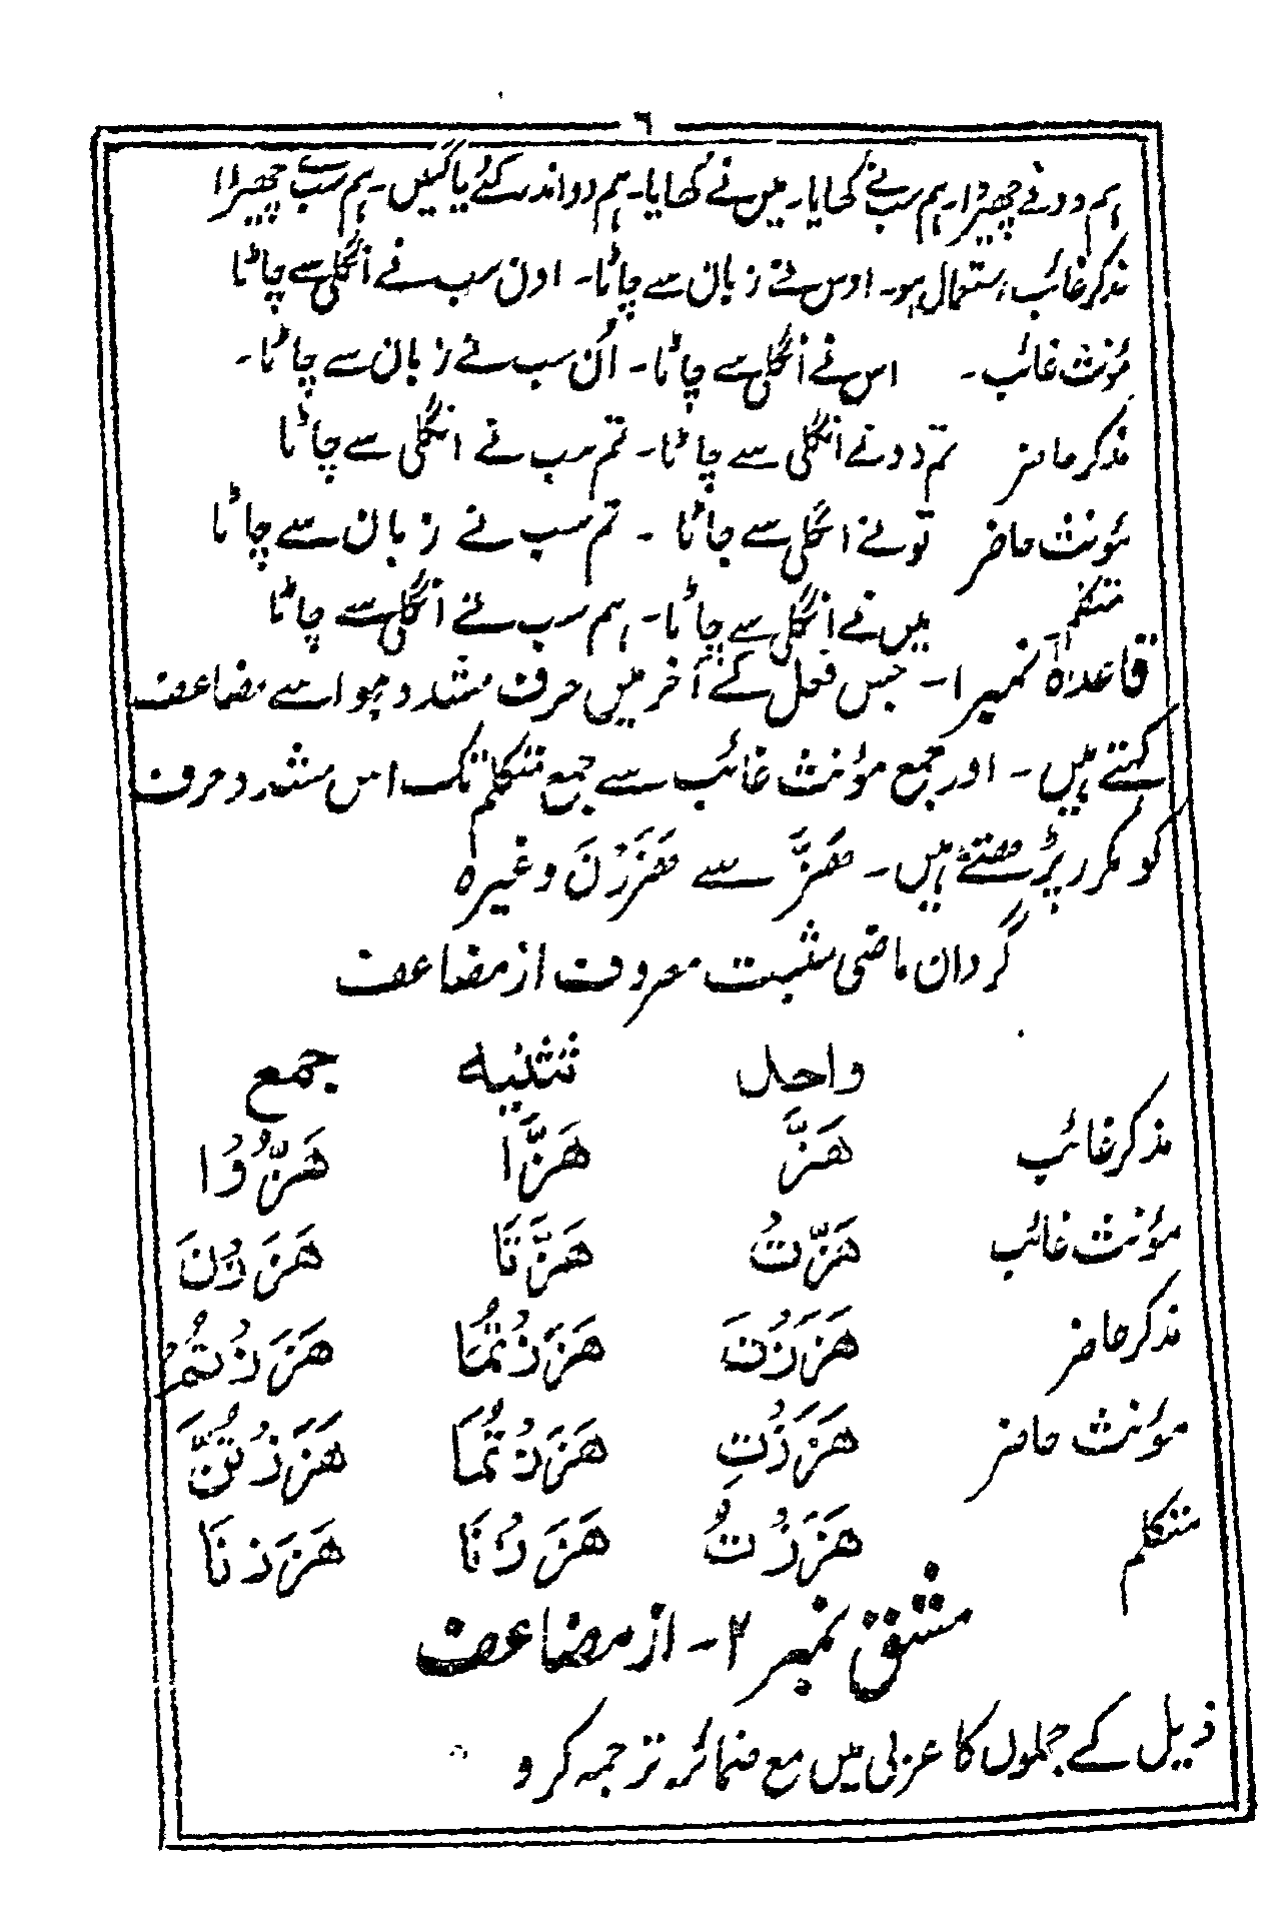 ٦
ہم دو نے چھیڑا۔ ہم سب نے کھایا۔ میں نے کھایا۔ ہم دو اندر گئے یا گئیں۔ ہم سب چھیڑا
مذکر غائب استعمال ہو۔ اوس نے زبان سے چاٹا۔ اون سب نے انگلی سے چاٹا
مؤنث غائب۔ اس نے انگلی سے چاٹا۔ اُن سب نے زبان سے چاٹا۔
مذکر حاضر تم دو نے انگلی سے چاٹا۔ تم سب نے انگلی سے چاٹا
مؤنث حاضر تو نے انگلی سے چاٹا ۔ تم سب نے زبان سے چاٹا
متکلم میں نے انگلی سے چاٹا۔ ہم سب نے انگلی سے چاٹا
قاعدہ نمبر ۱۔ جس فعل کے آخر میں حرف مشدد ہو اسے مضاعف
کہتے ہیں ۔ اور جمع مؤنث غائب سے جمع متکلم تک اس مشدد حرف
کو مکرر پڑھتے ہیں ۔ هَزَّ سے هَزَزْنَ وغیرہ
گردان ماضی مثبت معروف از مضاعف
واحد تثنیہ جمع
مذکر غائب هَزَّ هَزَّا هَزُّوْا
مؤنث غائب هَزَّتْ هَزَّتَا هَزَزْنَ
مذکر حاضر هَزَزْتَ هَزَزْتُمَا هَزَزْتُمْ
مؤنث حاضر هَزَزْتِ هَزَزْتُمَا هَزَزْتُنَّ
متکلم هَزَزْتُ هَزَزْنَا هَزَزْنَا
مشق نمبر ۲ ۔ از مضاعف
ذیل کے جملوں کا عربی میں مع ضمائر ترجمہ کرو